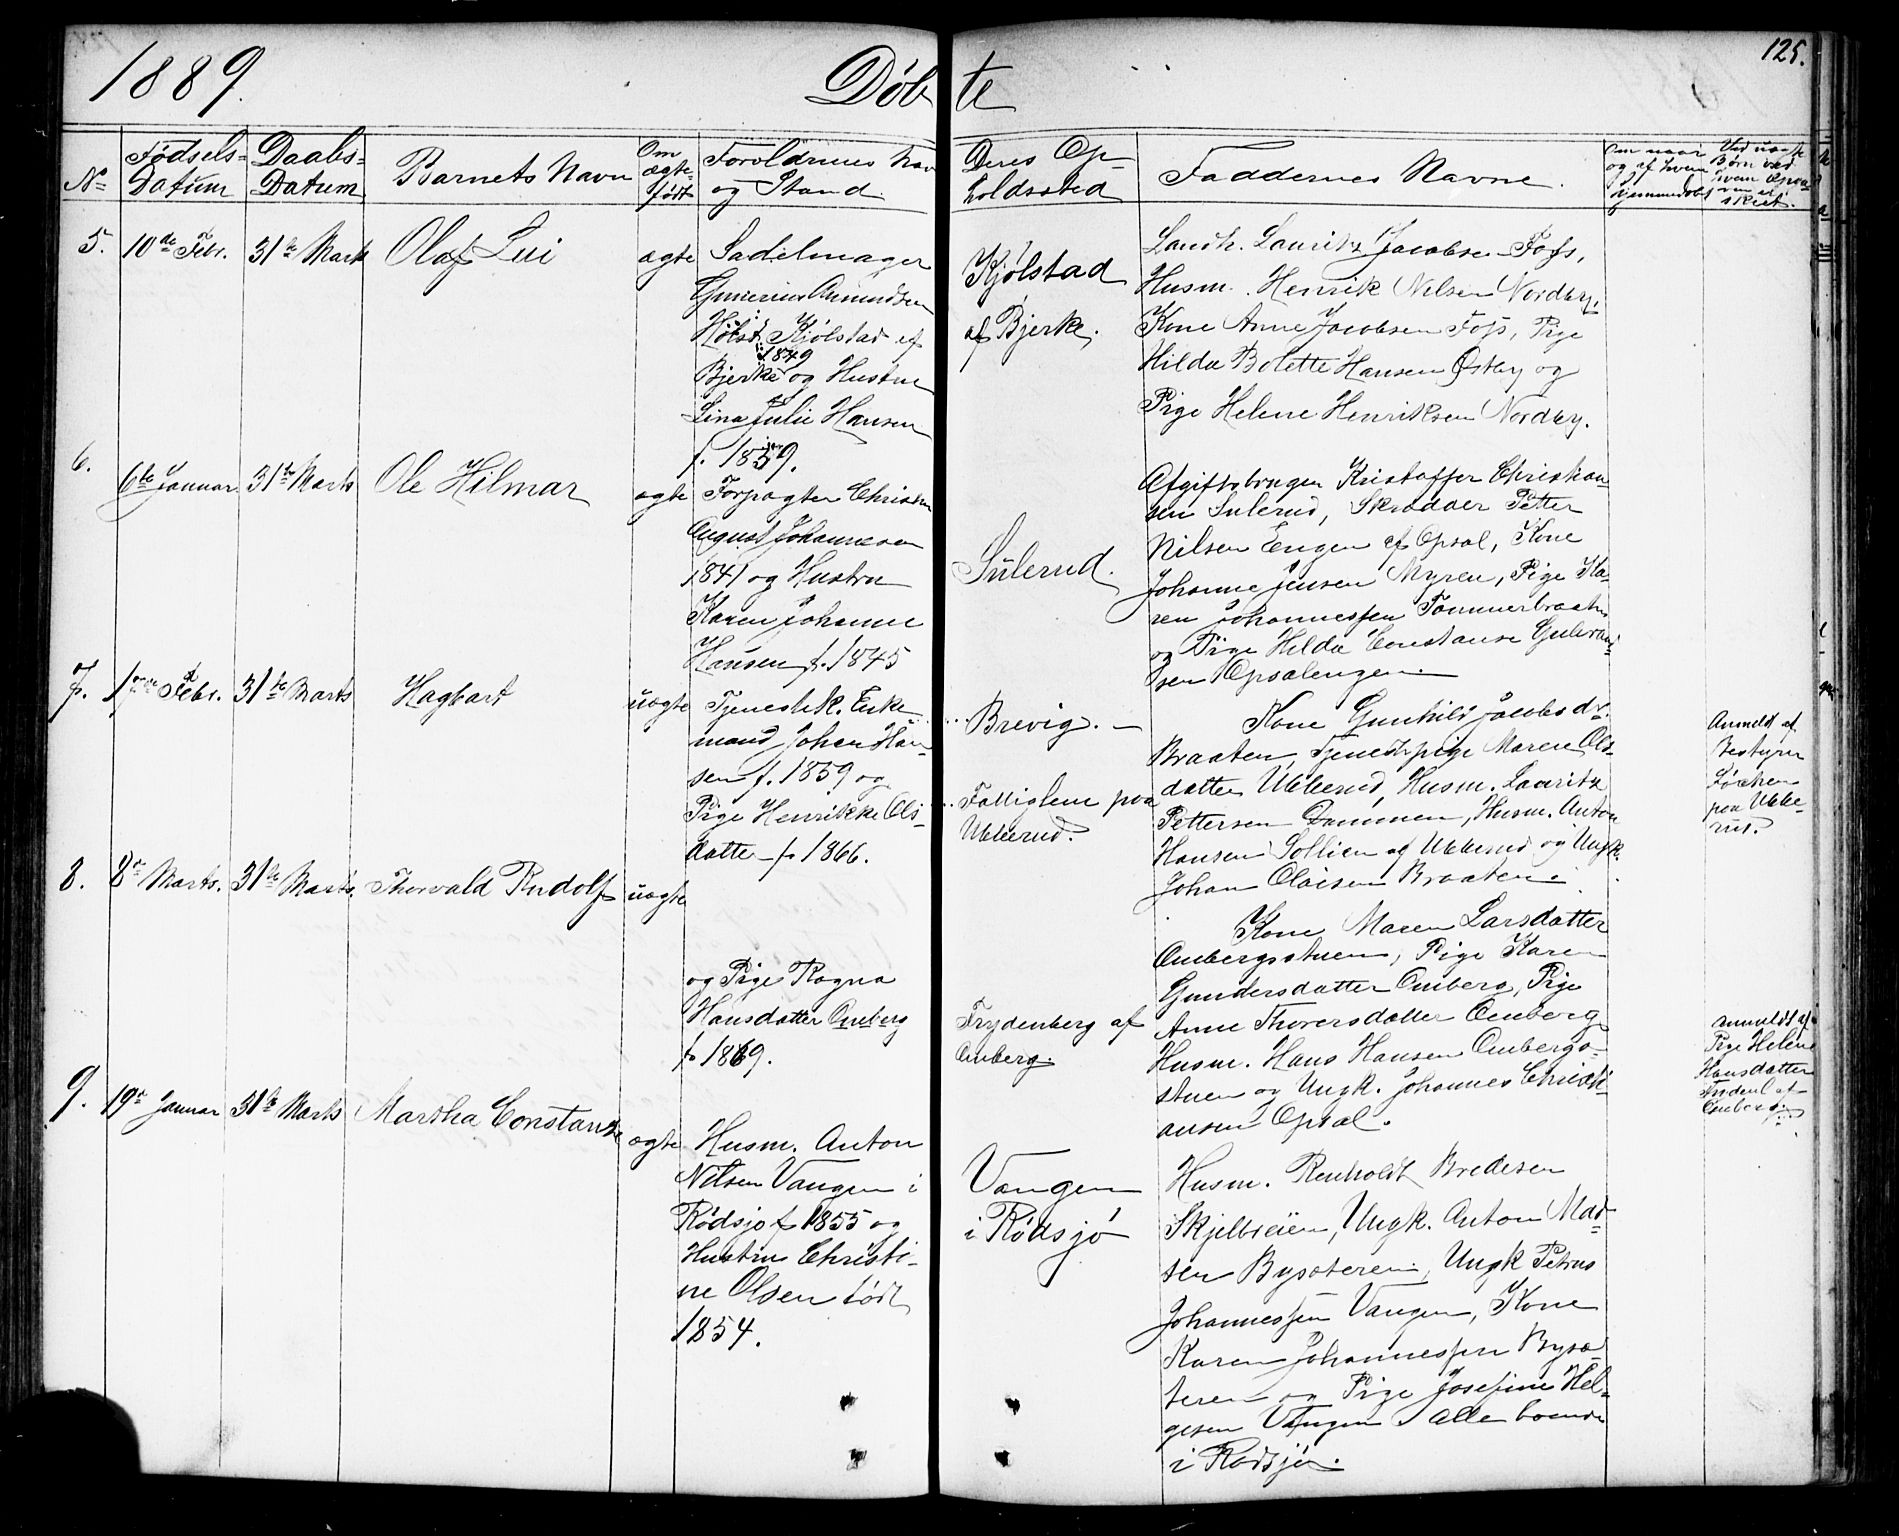 1889.
Døbte
125.
No
Fødsels-
Datum
Daabs-
Datum
Barnets Navn
Om
ægte
født
Forældrenes Navn
og Stand
Deres Op-
holdssted
Faddernes Navne.
5.
10de Febr.
31te Marts
Olaf Lui
ægte
Sadelmager
Gunerius Amundsen
Holst, Kjølstad af
1849
Bjerke og Hustru
Lina Julie Hansen
f. 1859.
Kjølstad
af Bjerke.
Landh. Lauritz Jacobsen Foss,
Husm. Henrik Nilsen Nordby,
Kone Anne Jacobsen Foss, Pige
Hilda Bolette Hansen Østby og
Pige Helene Henriksen Nordby.
6.
6te Januar
31te Marts
Ole Hilmar
ægte
Forpagter Christian
August Johannesen
1841 og Hustru
Karen Johanne
Hansen f. 1845
Sulerud.
Afgiftsbruger Kristoffer Christian-
sen Sulerud, Skrædder Petter
Nilsen Engen af Opsal, Kone
Johanne Jensen Myren, Pige Ka-
ren Johannessen Tømmerbraaten
og Pige Hilda Constanse Gulbrand-
sen Opsalengen.
7.
1ste Febr.
31te Marts
Hagbart
uægte
Tjenestek. Enke-
mand Johan Han-
sen f. 1859 og
Pige Henrikke Ols-
datter f. 1866.
Brevig. —
Fattiglem paa
Ubberud.
Kone Gunhild Jacobsdr.
Braaten, Tjenestepige Maren Ols-
datter Ubberud, Husm. Lauritz
Pettersen Dammen, Husm. Anton
Hansen Sollien af Ubberud og Ungk.
Johan Olaisen Braaten.
Anmeldt af
Bestyrer
Løchen
paa Ubbe-
rud.
8.
8de Marts.
31te Marts.
Thorvald Rudolf
uægte
og Pige Ragna
Hansdatter Omberg
f. 1869.
Frydenberg af
Omberg.
Kone Maren Larsdatter
Ombergsstuen, Pige Karen
Gundersdatter Omberg, Pige
Anne Thoresdatter Omberg
Husm. Hans Hansen Ombergs-
stuen og Ungk. Johannes Christi-
ansen Opsal.
anmeldt af
Pige Helene
Hansdatter
Frydenb. af
Omberg.
9.
19de Januar
31te Marts
Martha Constanse
ægte
Husm. Anton
Nilsen Vangen i
Rødsjø f. 1855 og
Hustru Christi-
ne Olsen født
1854.
Vangen
i Rødsjø
Husm. Renholdt Bredesen
Skjelbreien, Ungk. Anton Mad-
sen Bysæteren, Ungk Petrus
Johannessen Vangen, Kone
Karen Johannessen Bysæ-
teren og Pige Josefine Hel-
gesen Vangen Alle boende
i Rødsjø.